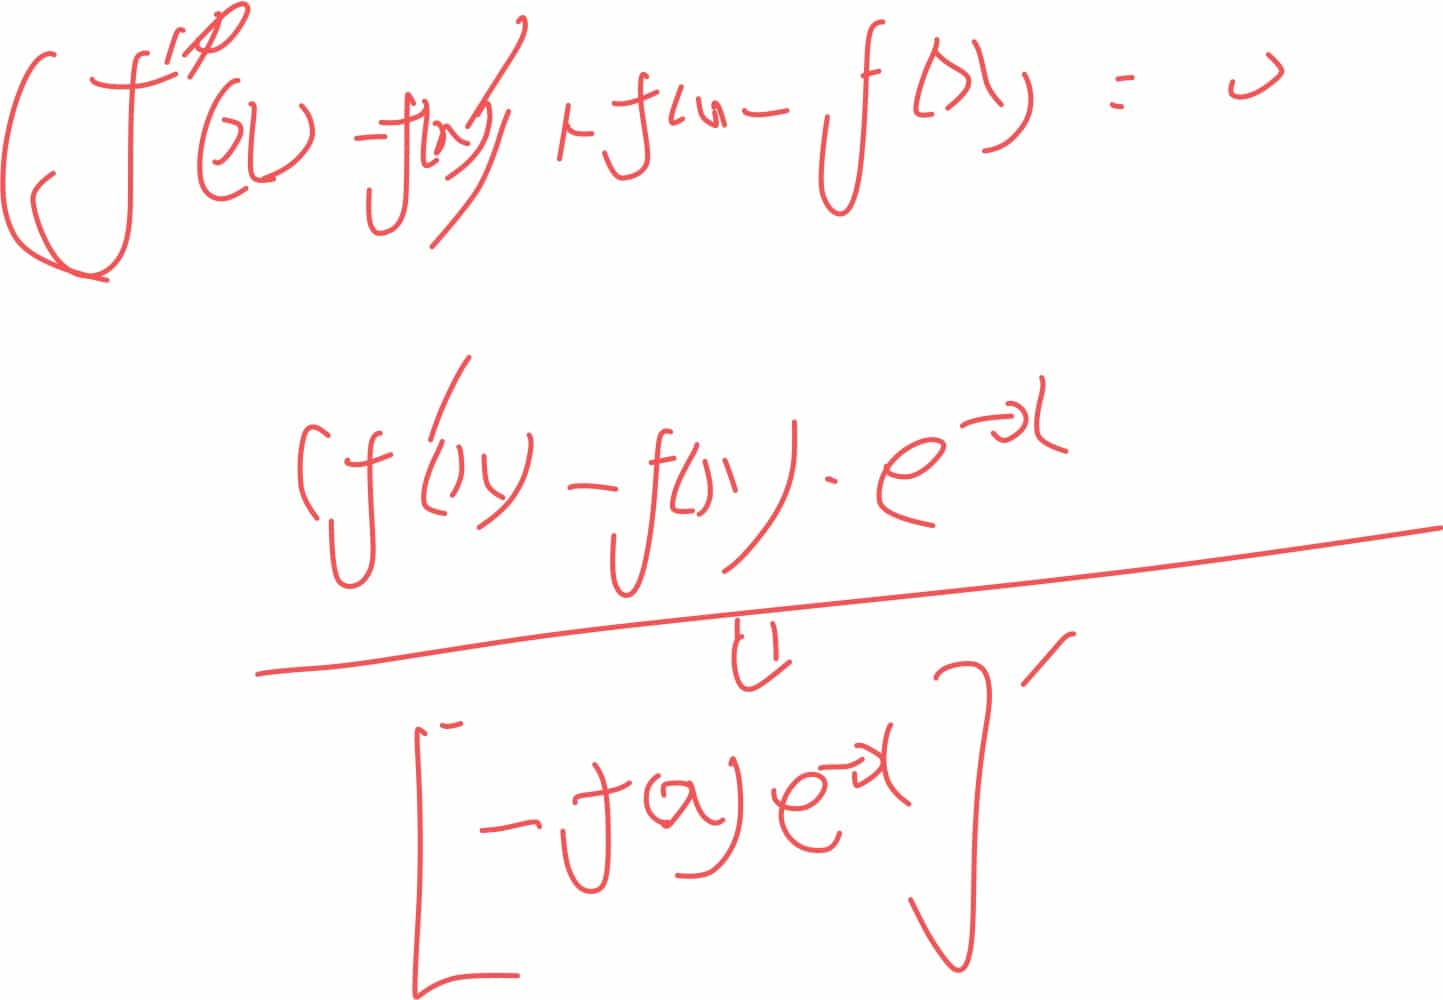 (f''(x) - f(x))' + f'(x) - f(x) = 0
(f'(x) - f(x)) · e^{-x}
[-f(x) e^{-x}]'